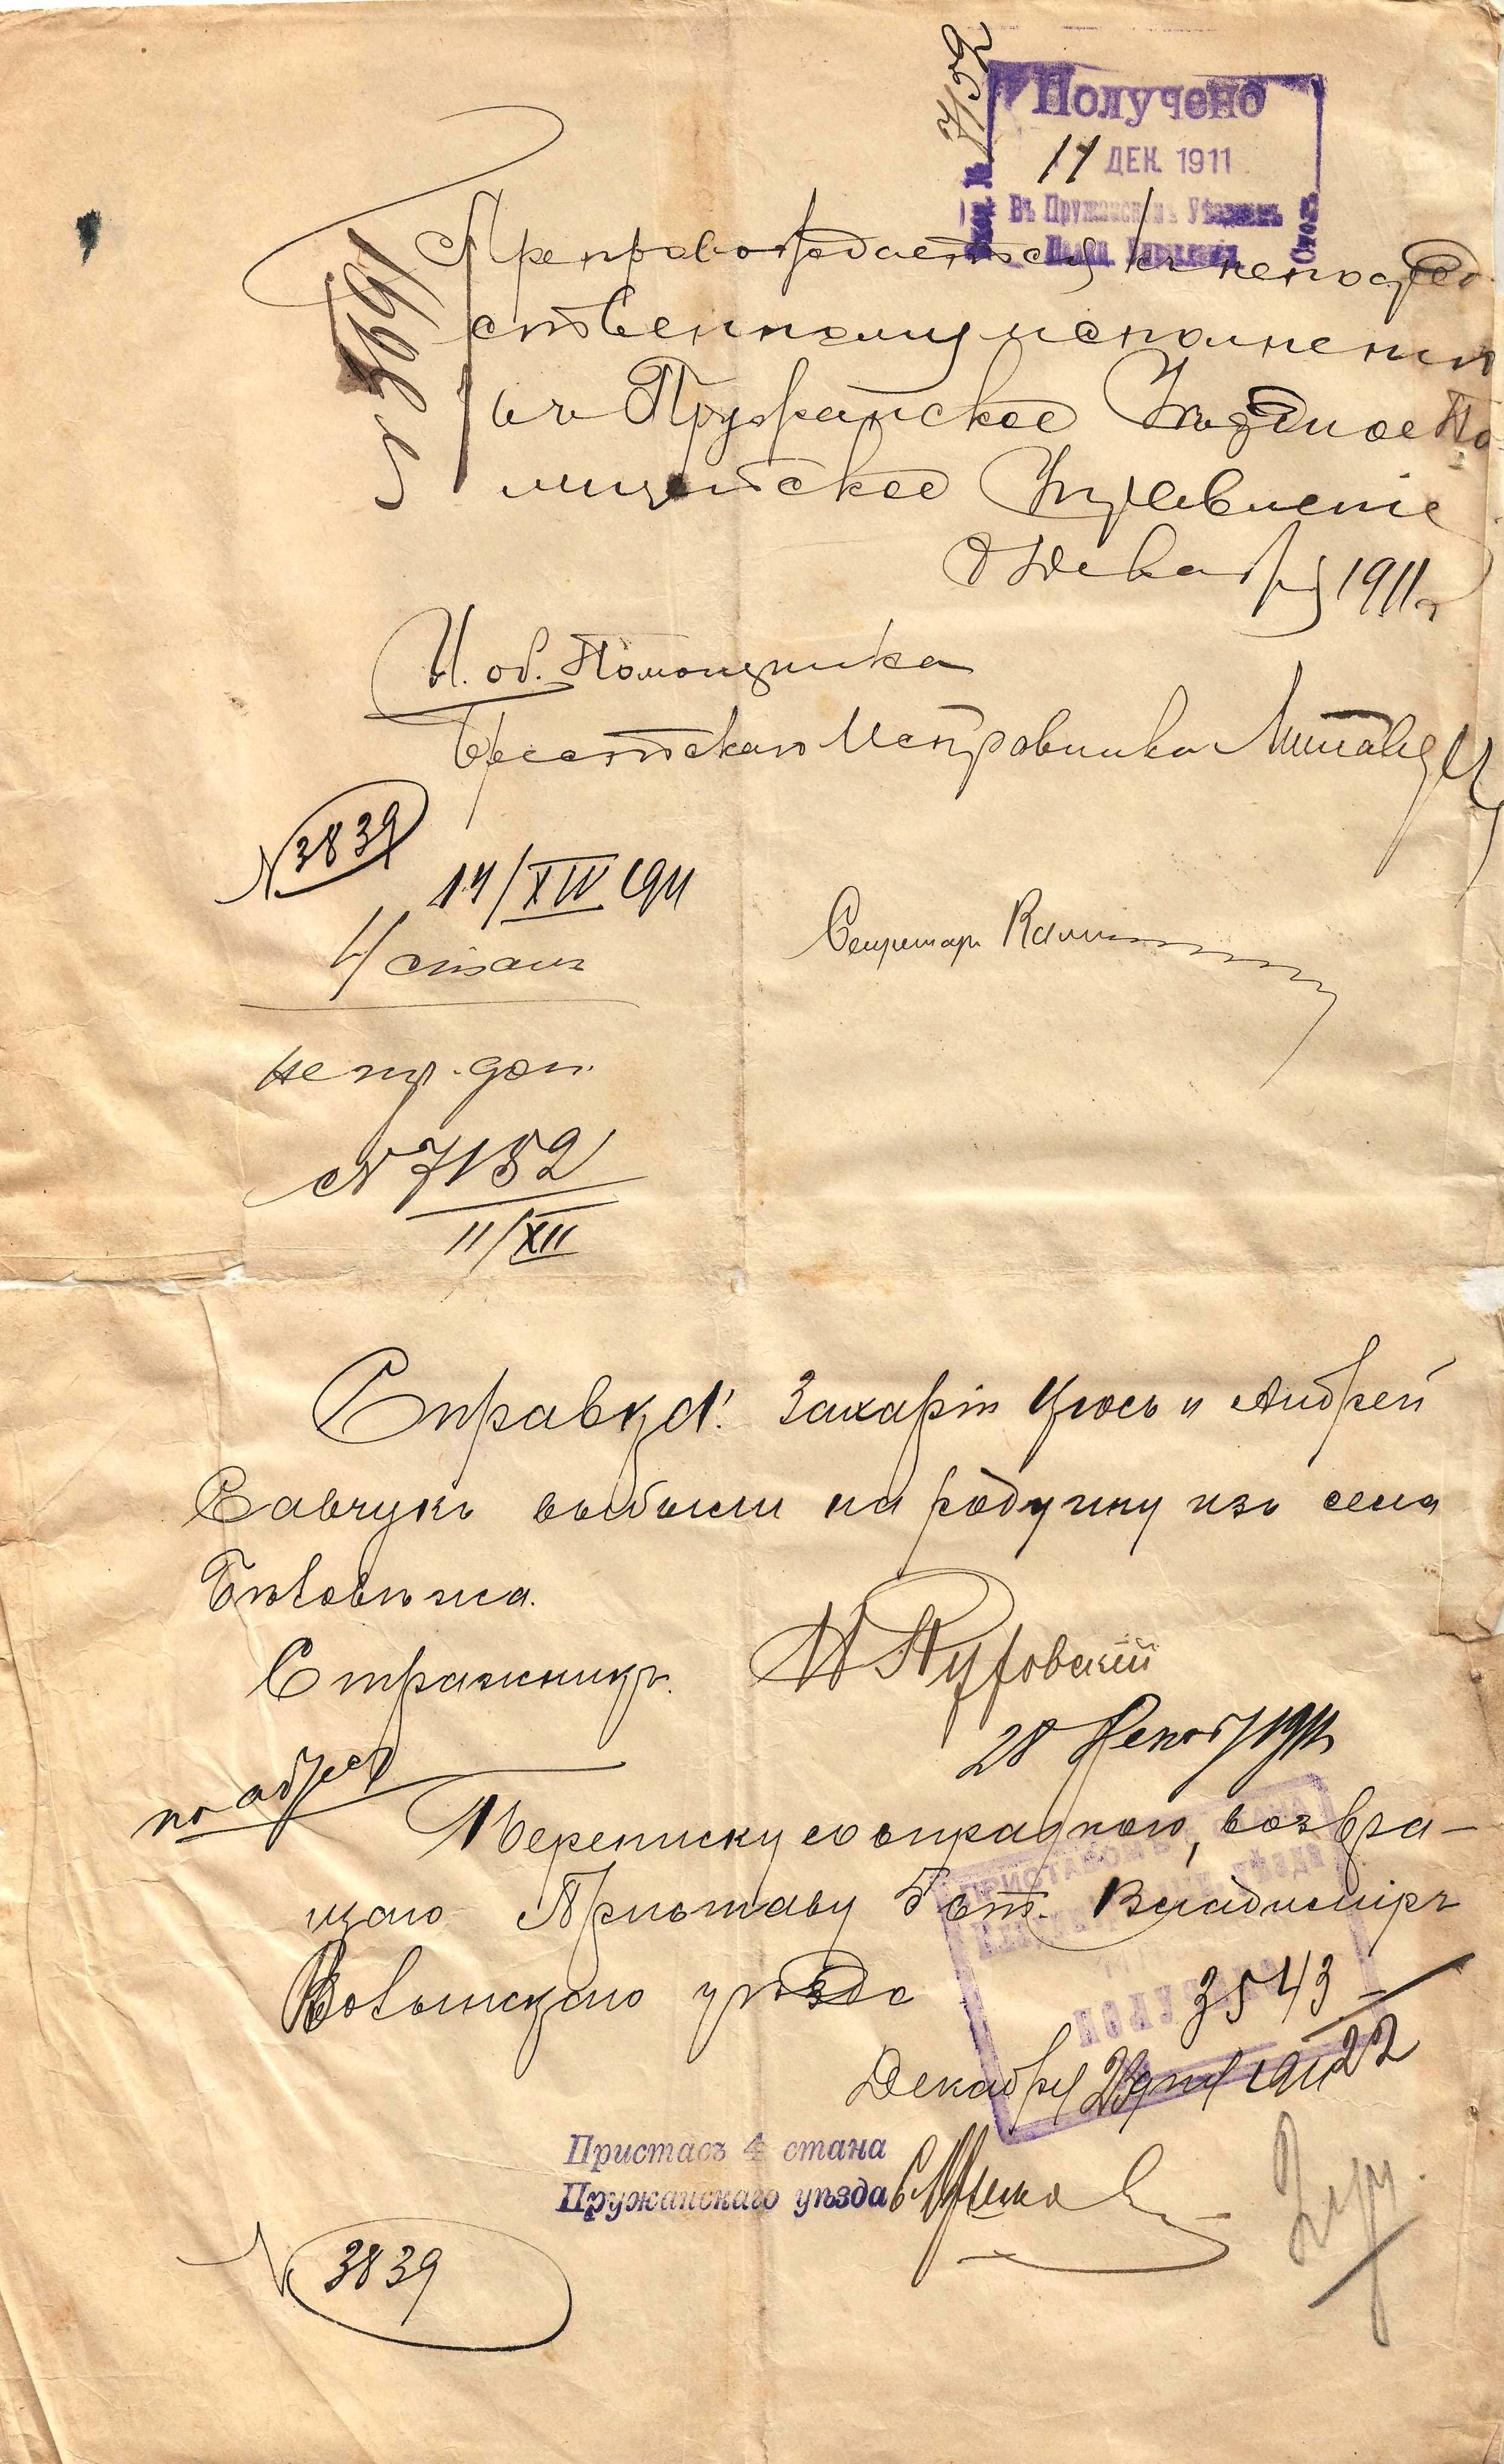 7152
Получено
11 ДЕК. 1911
Въ Пружанскомъ Уѣздномъ
Полиц. Управленіи
Вход. №
Препровождается къ непосред
ственному исполненію
въ Пружанское Уѣздное По
лицейское Управленіе
8 Декабря 1911 г
№ 3691
И. об. Помощника
Брестскаго Исправника
№ 3839
14/XII 1911
4/станъ
Секретарь
№ 7152
11/XII
Справка: Захарій Цюсь и Андрей
Савчукъ выбыли на родину изъ села
Бѣловѣжа.
Стражникъ.
28 Декабря 1911
по адресу
Переписку со справкою, возвра-
щаю Приставу 5 ст. Владиміръ
Волынскаго уѣзда
3543
Декабря 29 дня 1911
22
Приставъ 4 стана
Пружанскаго уѣзда
№ 3839